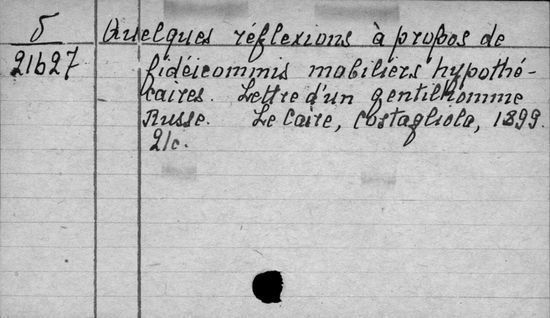 5
21627
Quelques réflexions à propos de
fidéicommis mobiliers hypothé-
caires. Lettre d'un gentilhomme
Russe. Le Caire, Costagliola, 1899.
21c.